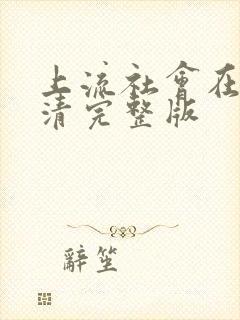 上流社會在
清完整版
辭笙